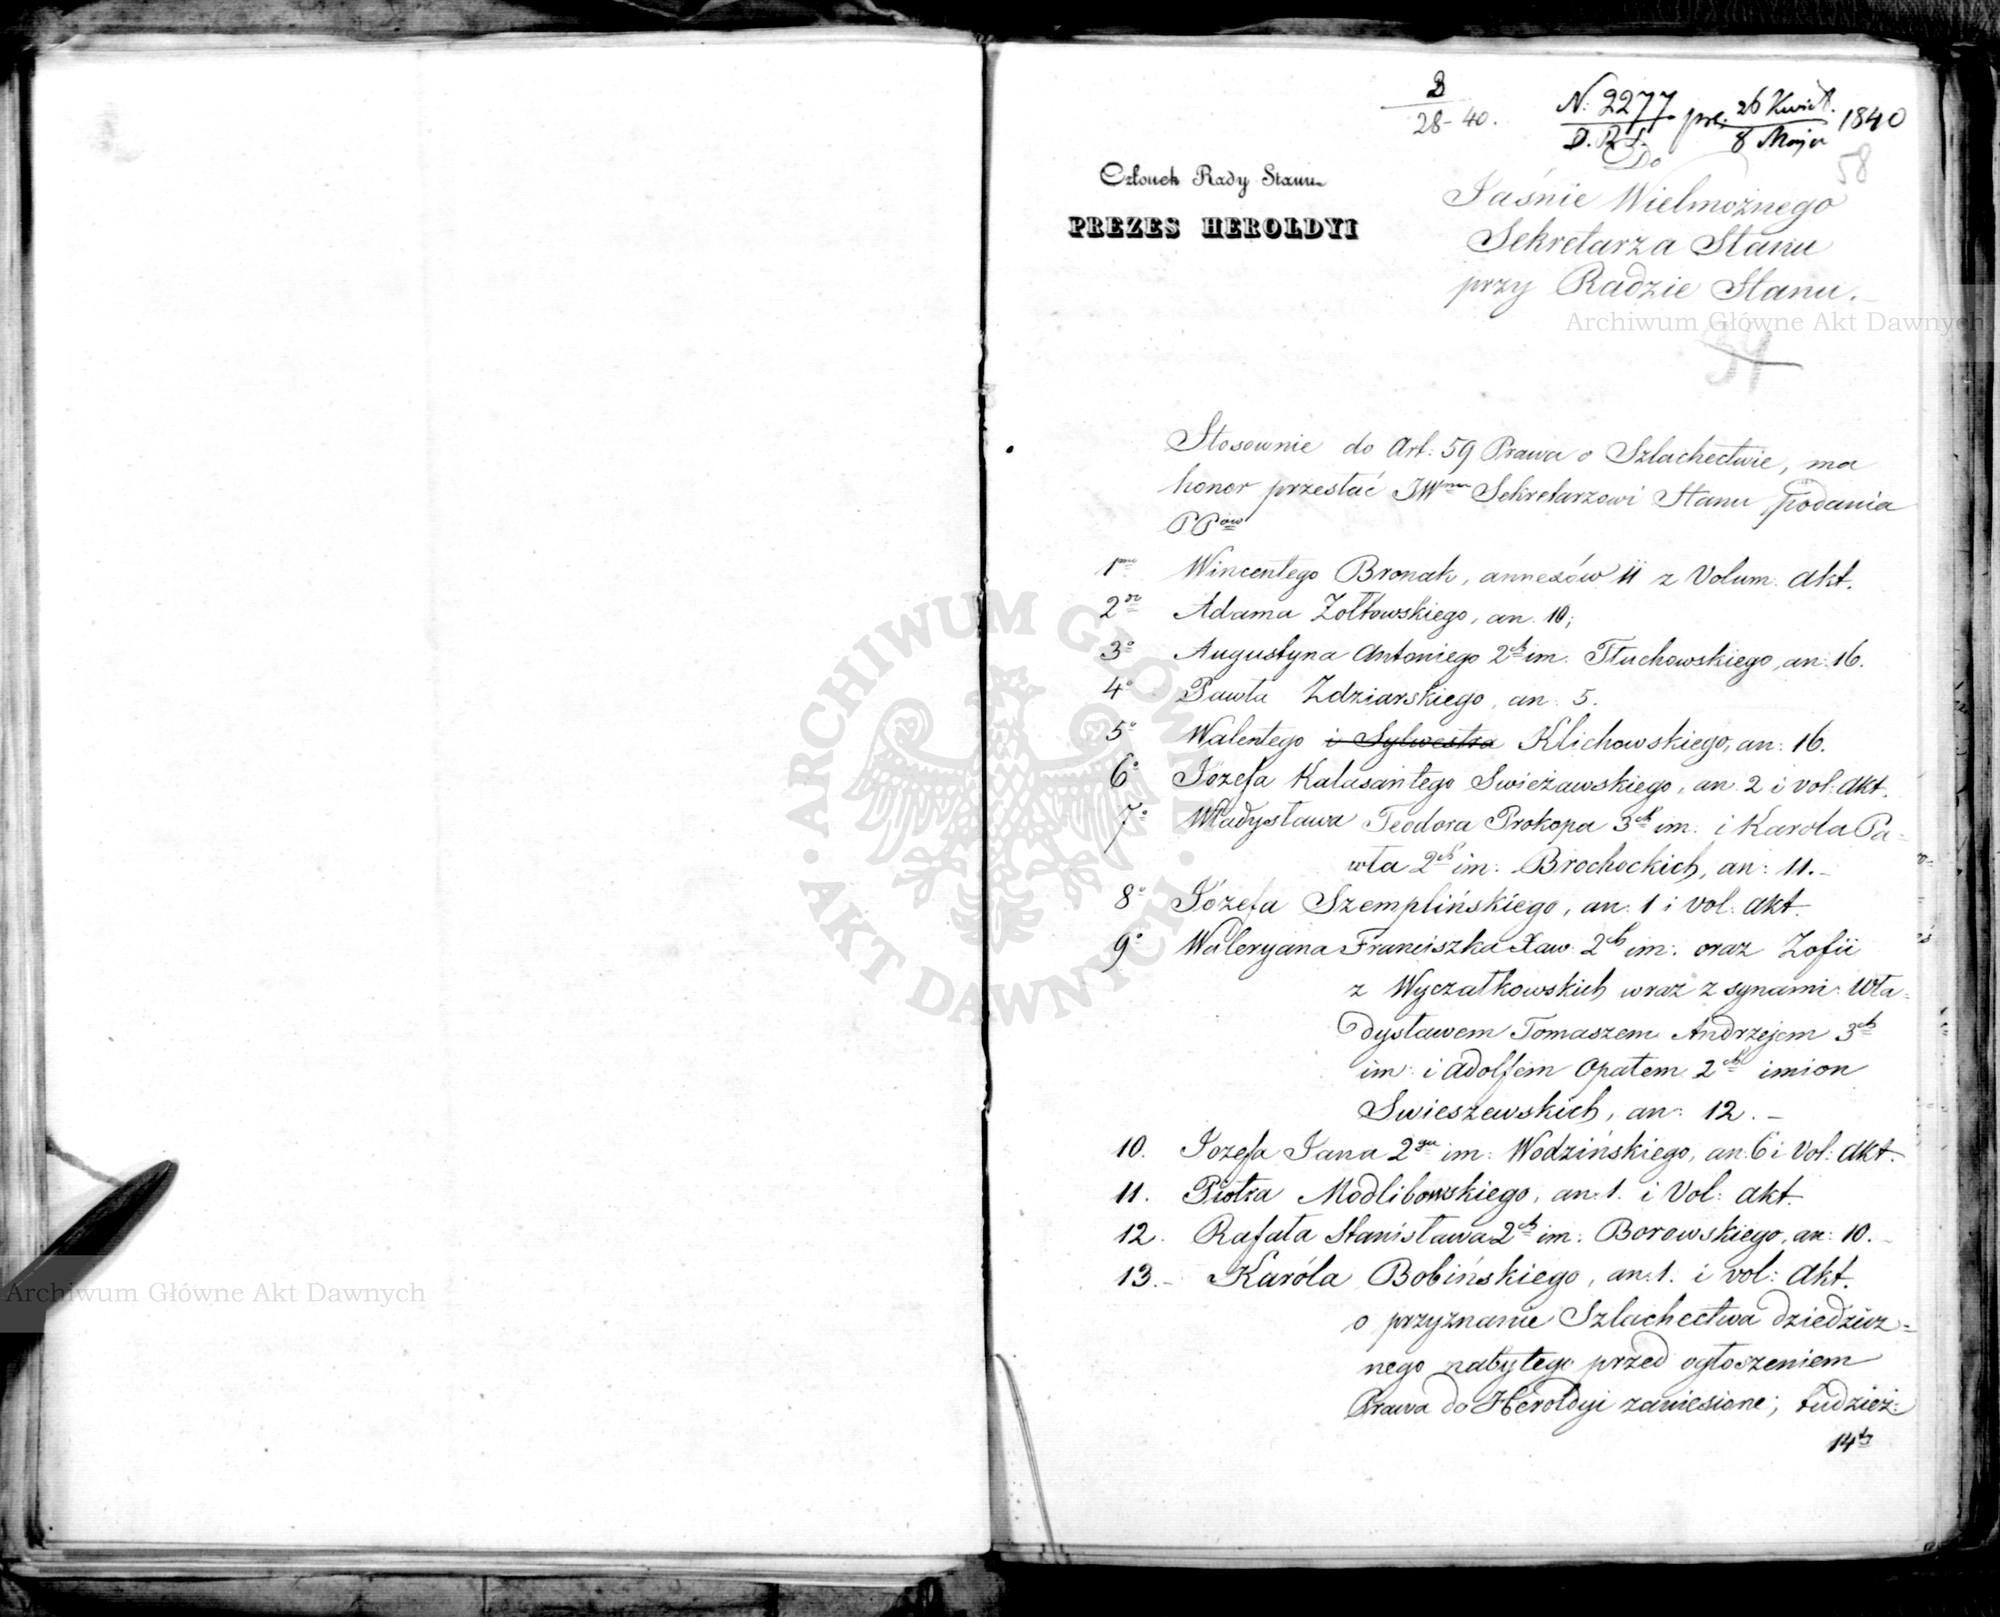 2
28-40.
N: 2277 pre: 26 Kwiet. 1840
D.R.S. 8 Maja
58
Członek Rady Stanu
PREZES HEROLDYI
Do
Jaśnie Wielmożnego
Sekretarza Stanu
przy Radzie Stanu.
Archiwum Główne Akt Dawnych
Stosownie do Art: 59 Prawa o Szlachectwie, ma
honor przesłać JWmu Sekretarzowi Stanu podania
PPów
1mo Wincentego Bronak, annexów 11 z Volum. Akt.
2do Adama Żołtowskiego, an. 10;
3o Augustyna Antoniego 2ch im. Tłuchowskiego, an: 16.
4o Pawła Zdziarskiego, an: 5.
5o Walentego i Sylwestra Klichowskiego, an: 16.
6o Józefa Kalasantego Swieżawskiego, an. 2 i vol: Akt.
7o Władysława Teodora Prokopa 3ch im: i Karola Pa=
wła 2ch im: Brochockich, an: 11.-
8o Józefa Szemplińskiego, an: 1 i vol: Akt.
9o Waleryana Franciszka Xaw: 2ch im: oraz Zofii
z Wyczałkowskich wraz z synami: Wła=
dysławem Tomaszem Andrzejem 3ch
im: i Adolfem Opatem 2ch imion
Swieszewskich, an: 12.-
10. Jozefa Jana 2ga im: Wodzińskiego, an: 6 i Vol: Akt.
11. Piotra Modlibowskiego, an: 1. i Vol: Akt.
12. Rafała Stanisława 2ch im: Borowskiego, an: 10.-
13.- Karóla Bobińskiego, an: 1. i vol: Akt.
o przyznanie Szlachectwa dziedzicz=
nego nabytego przed ogłoszeniem
Prawa do Heroldyi zaniesione; tudzież:
14to
ARCHIWUM GŁÓWNE · AKT DAWNYCH ·
Archiwum Główne Akt Dawnych